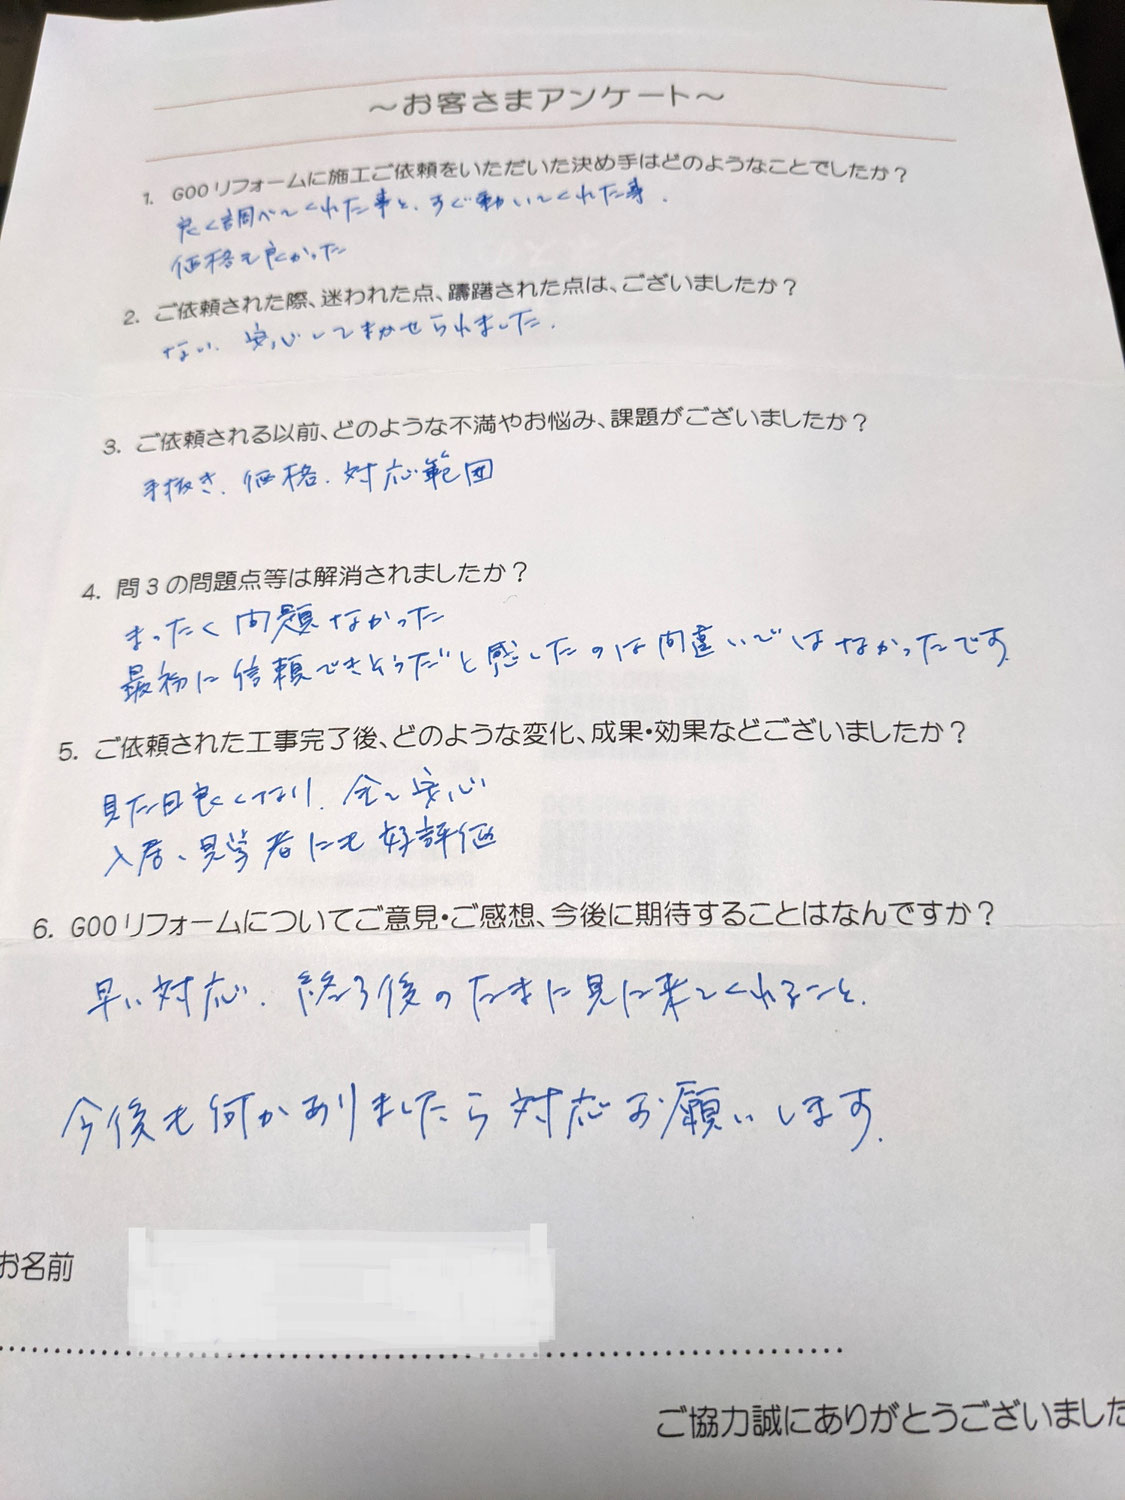 ～お客さまアンケート～
1. GOOリフォームに施工ご依頼をいただいた決め手はどのようなことでしたか？
良く調べてくれた事と、すぐ動いてくれた事.
価格も良かった
2. ご依頼された際、迷われた点、躊躇された点は、ございましたか？
ない. 安心してまかせられました.
3. ご依頼される以前、どのような不満やお悩み、課題がございましたか？
手抜き. 価格. 対応範囲
4. 問3の問題点等は解消されましたか？
まったく問題なかった
最初に信頼できそうだと感じたのは間違いではなかったです
5. ご依頼された工事完了後、どのような変化、成果・効果などございましたか？
見た目良くなり. 全て安心
入居、見学者にも好評価
6. GOOリフォームについてご意見・ご感想、今後に期待することはなんですか？
早い対応. 終了後のたまに見に来てくれること.
今後も何かありましたら対応お願いします.
お名前
ご協力誠にありがとうございました